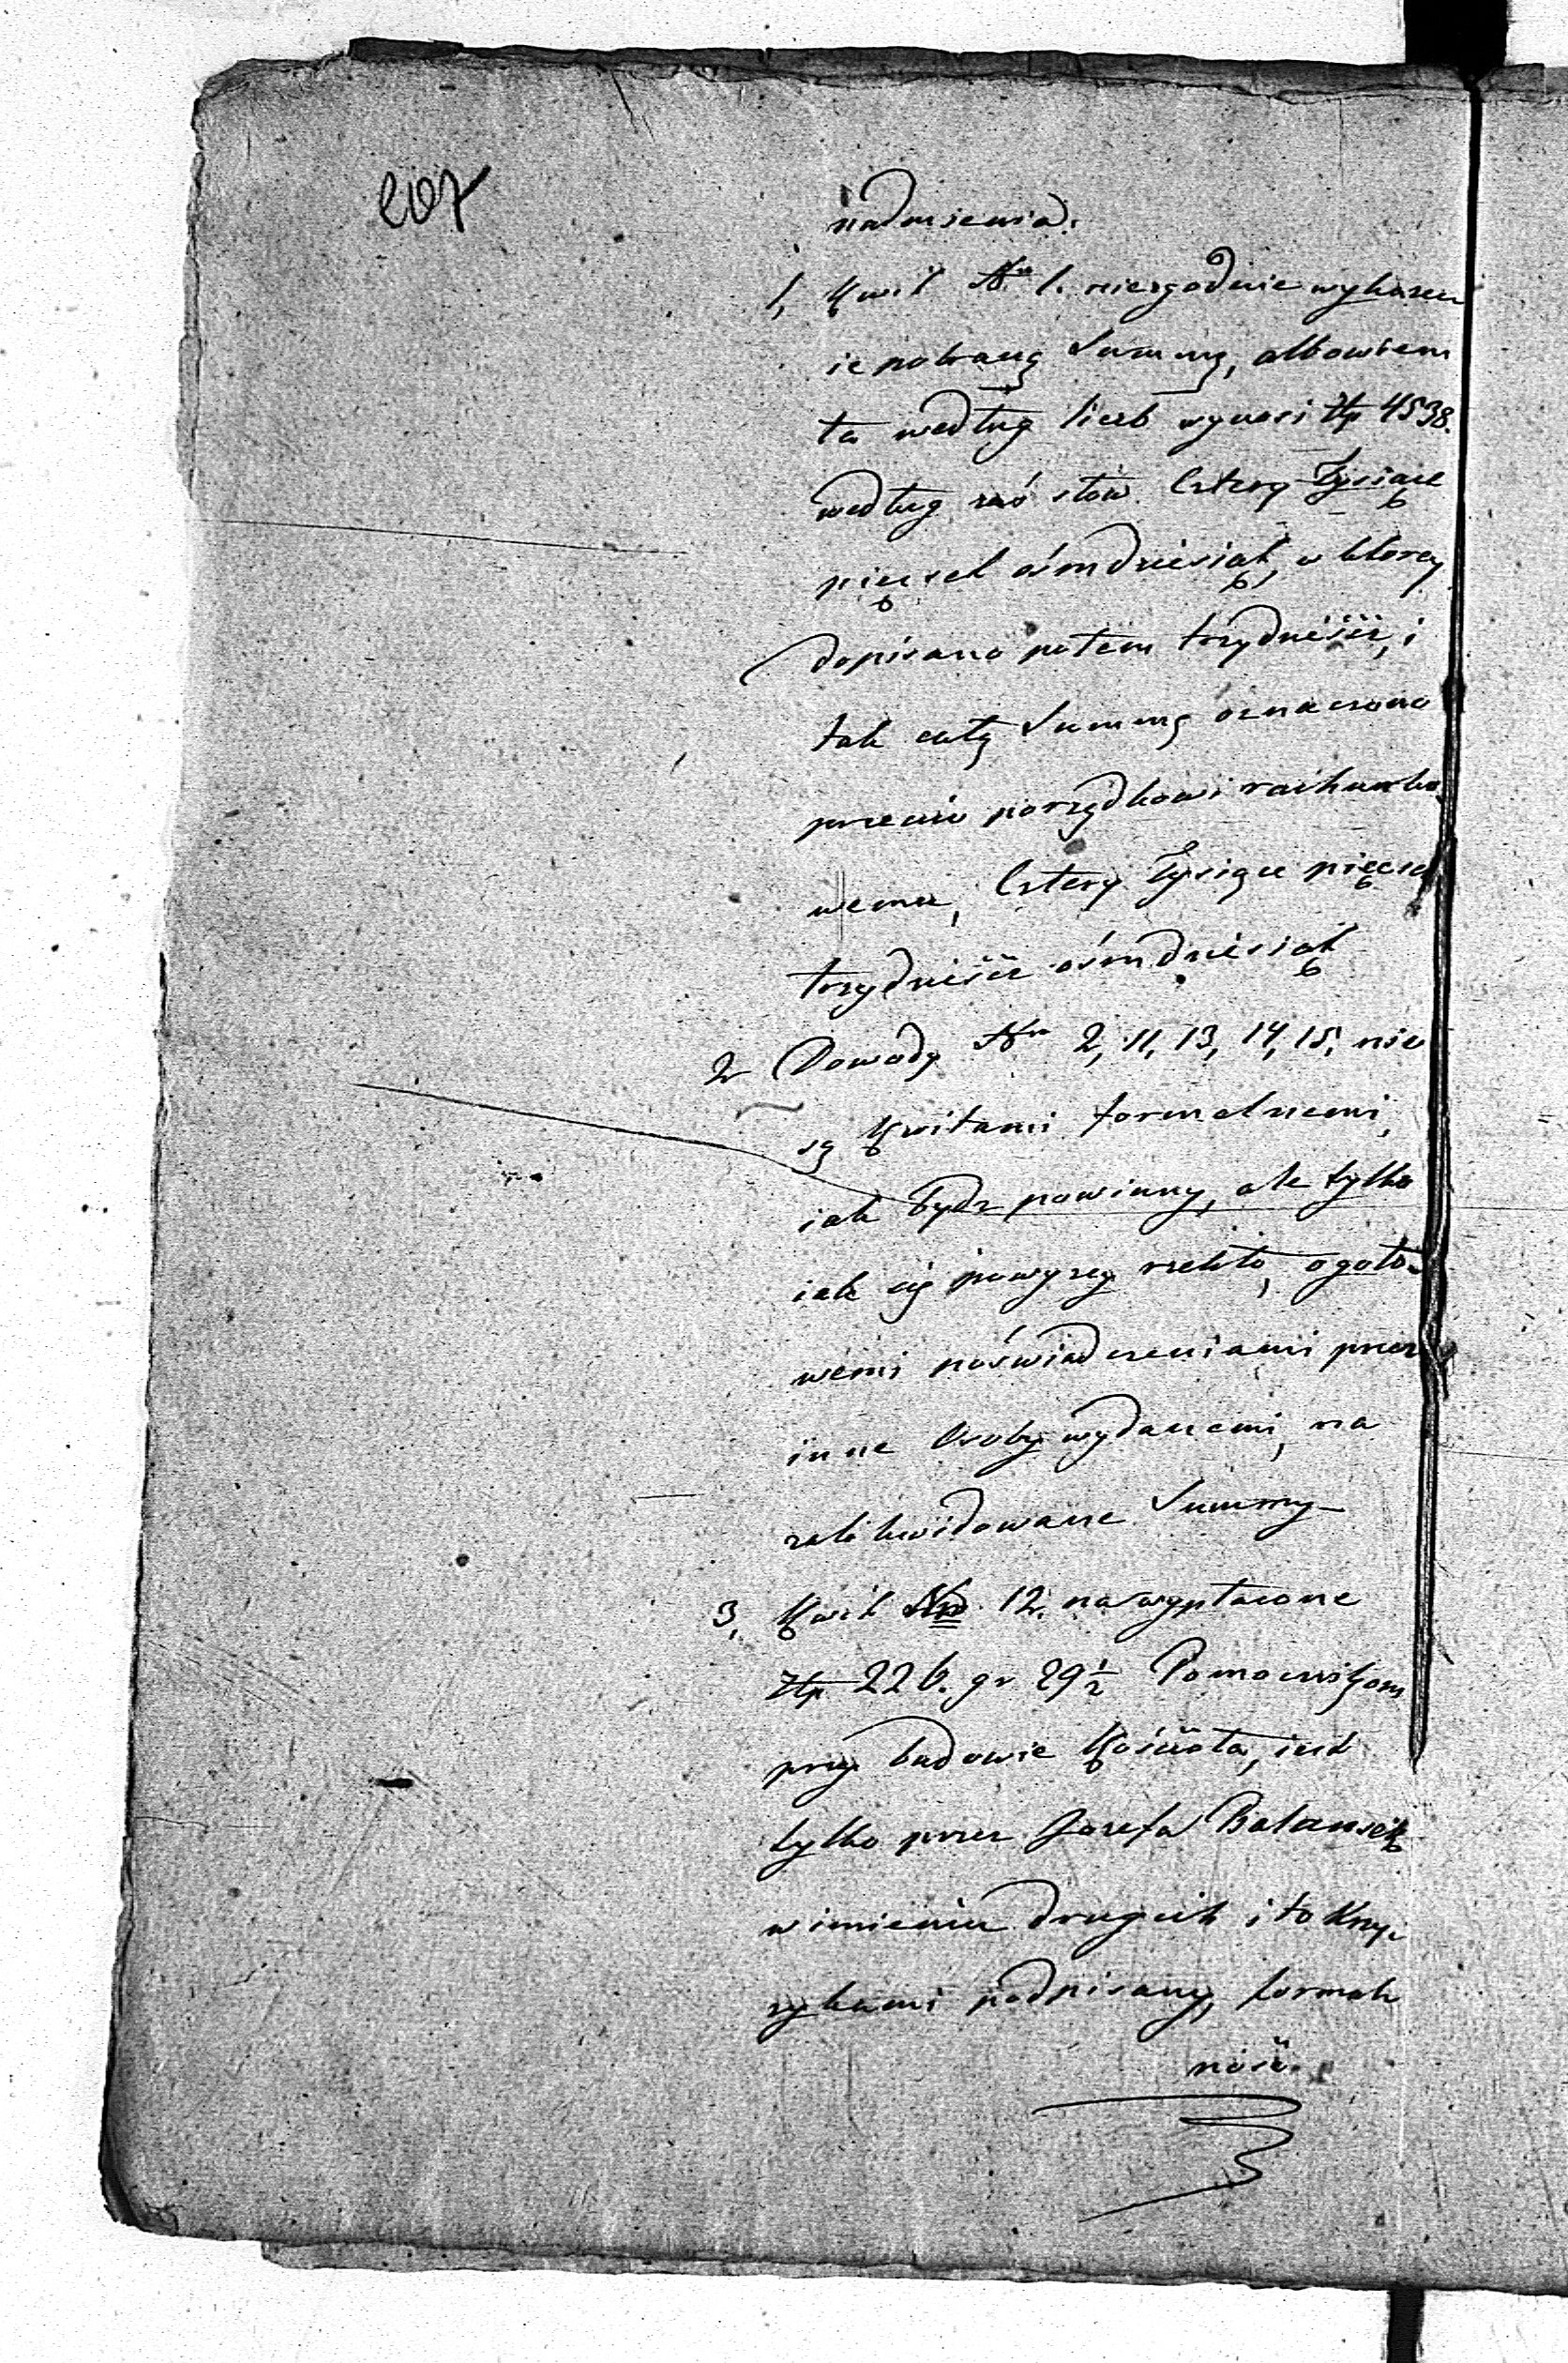 207
nadmienia.
1, Kwit Nro 1. niezgodnie wykazu
ie pobraną Summę, albowiem
ta według liczb wynosi Złp 4538.
według zaś słów Cztery Tysiące
pięćset ośmdziesiąt, w ktorey
dopisano potem trzydzieści, i
tak całą Summę oznaczono
przeciw porządkowi rachunko„
wemu, Cztery Tysiące pięćset
trzydzieści ośmdziesiąt
2 Dowody Nro 2, 11, 13, 14, 15, nie
są Kwitami formalnemi,
iak bydz powinny, ale tylko
iak się powyzey rzekło, ogoło„
wemi poświadczeniami przez
inne Osoby wydanemi, na
zalikwidowane Summy
3, Kwit Nro 12. na wypłacone
Złp 226. gr 29½ Pomocnikom
przy budowie Kościoła, iest
tylko przez Jozefa Balansek
w imieniu drugich i to Krzy„
zykami podpisany, formal
ność